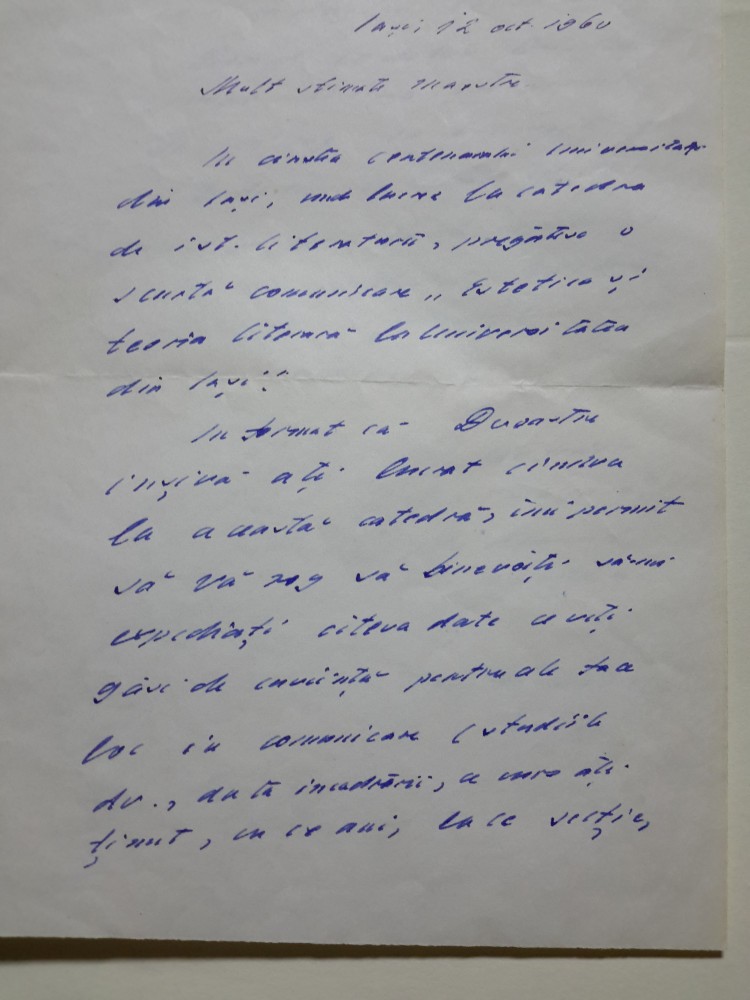 Iași, 12 oct. 1960
Mult stimate maestre
In cinstea centenarului Universității
din Iași, unde lucrez la catedra
de ist. literaturii, pregătesc o
scurtă comunicare „Estetica și
teoria literară la Universitatea
din Iași".
Informat că Dvoastre
inșivă ați lucrat cîndva
la această catedră, îmi permit
să vă rog să binevoiți să-mi
expediați citeva date ce veți
găsi de cuviință pentru a le face
loc in comunicare (studiile
dv., data incadrării, ce curs ați
ținut, in ce ani, la ce secție,